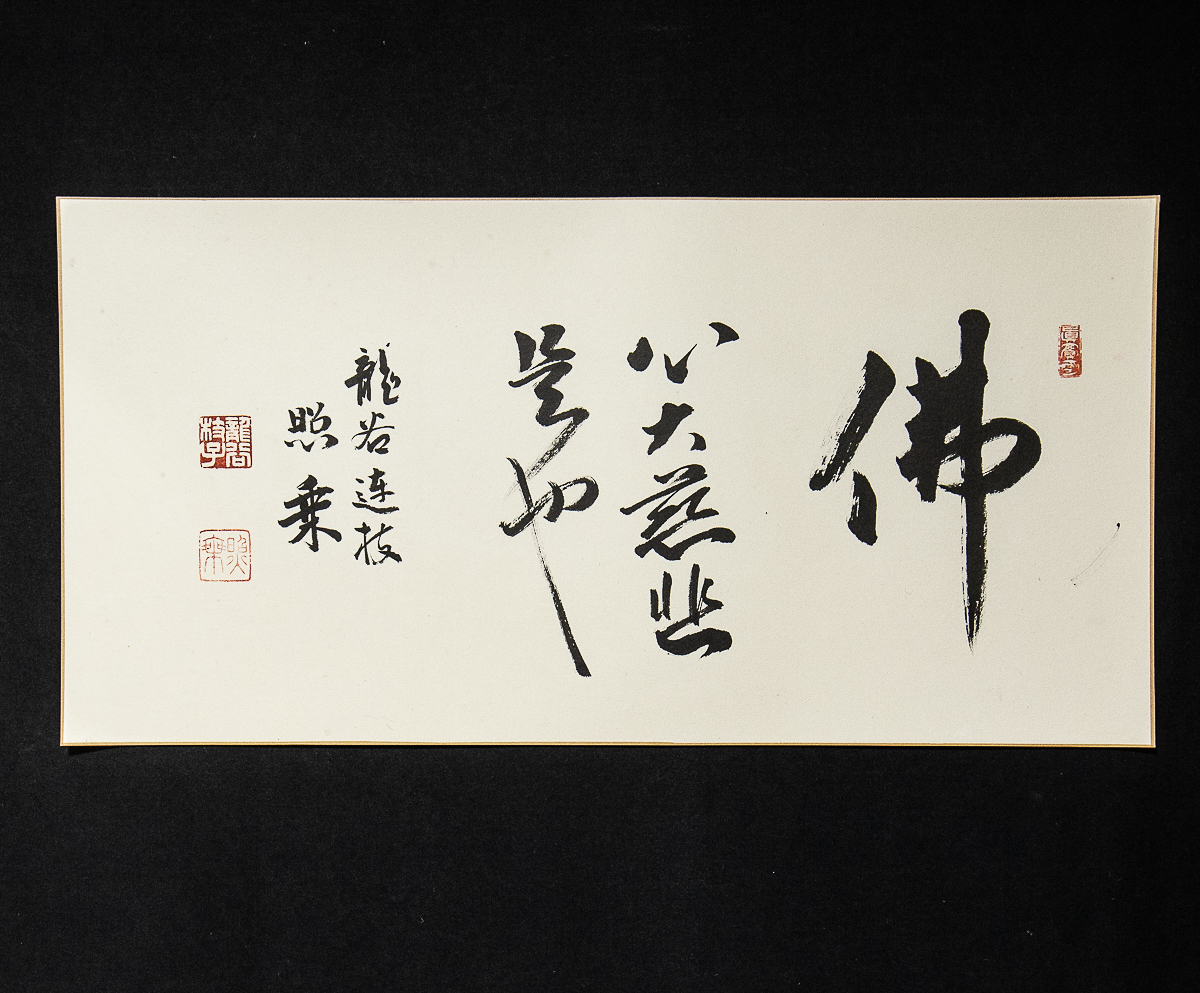 佛
心大慈悲
是也
龍谷連枝
照乗
龍谷
枝子
照乗